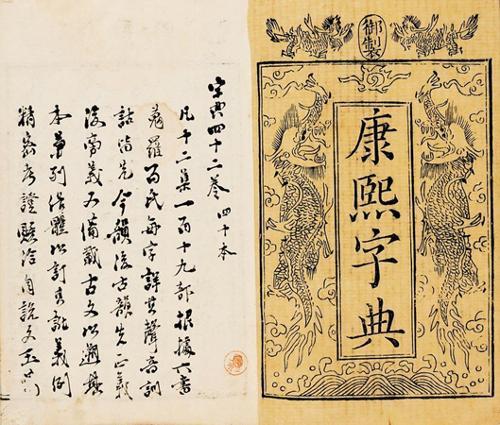 御製
康熙字典
字典四十二卷 四十本
凡十二集一百十九部根據六書
蒐羅百氏每字詳其聲音訓
詁皆先今韻後古韻先正義
後旁義又備載古文以遡其
本兼列俗體以訂其訛義例
精密考證賅洽自說文玉